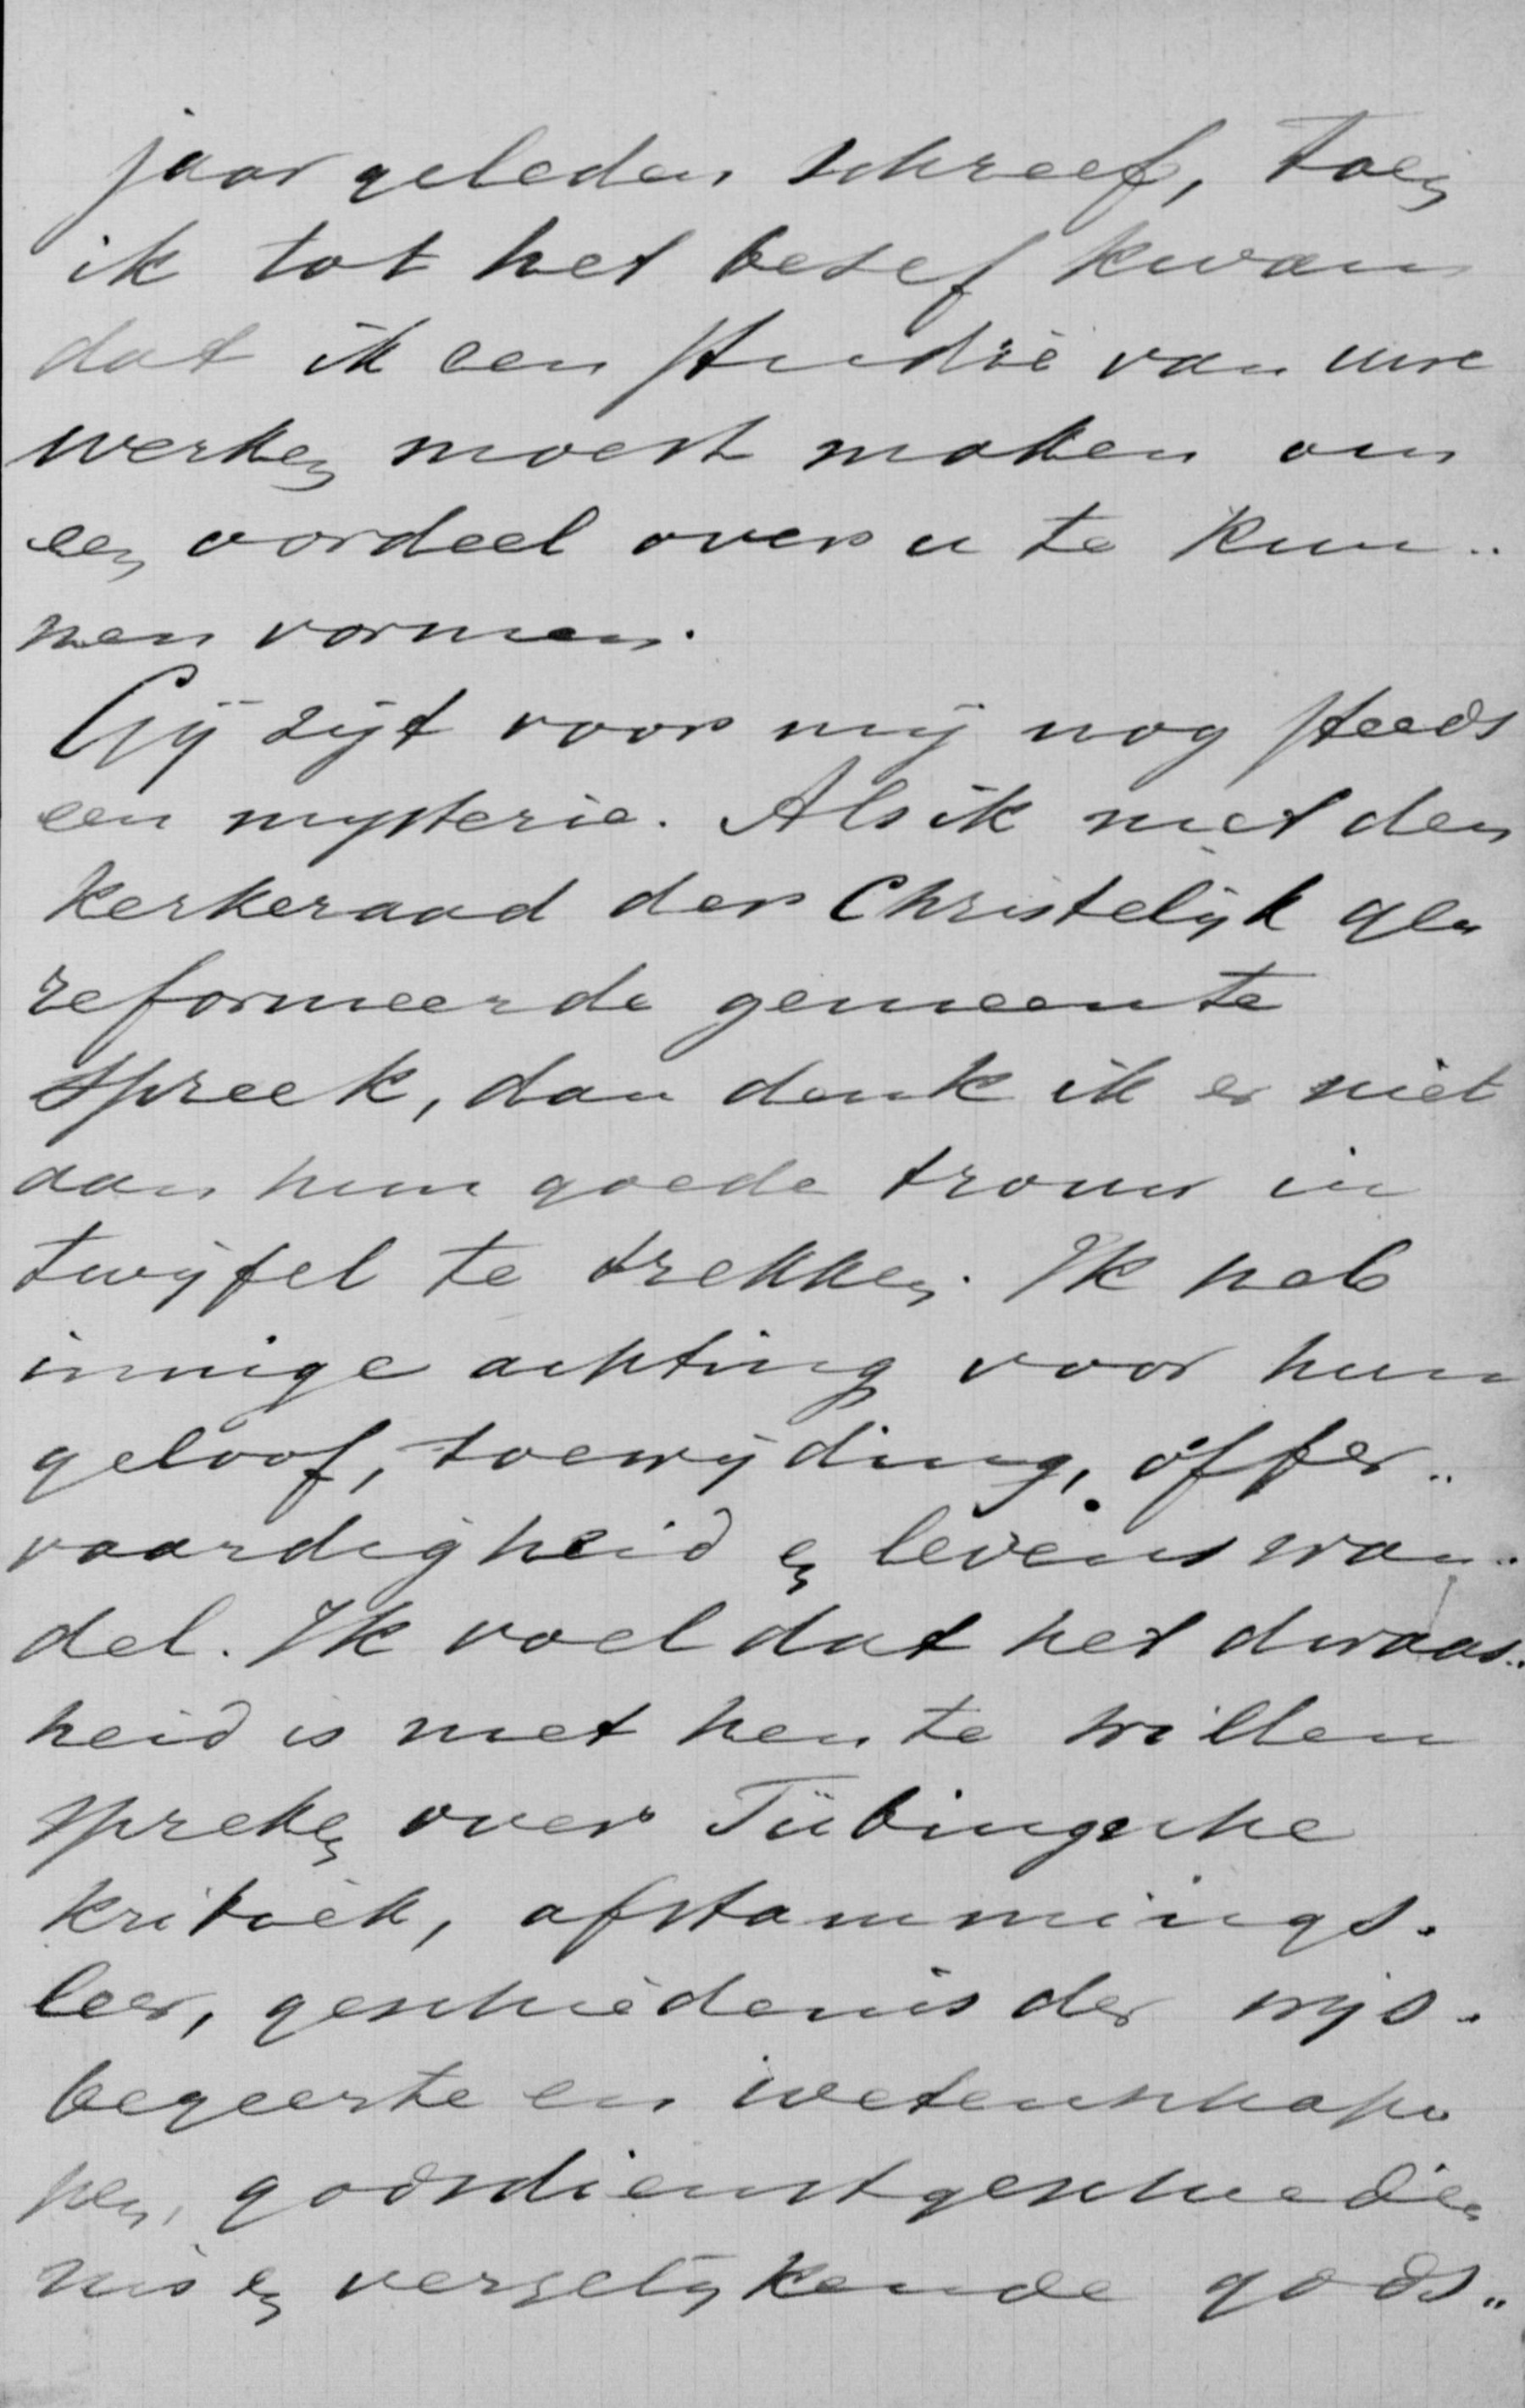 jaar geleden schreef, toen
ik tot het besef kwam
dat ik een studie van uwe
werken moest maken om
een oordeel over u te kun„
nen vormen.
Gij zijt voor mij nog steeds
een mysterie. Als ik met den
kerkeraad der Christelijk ge„
reformeerde gemeente
spreek, dan denk ik er niet
aan hun goede trouw in
twijfel te trekken. Ik heb
innige achting voor hun
geloof, toewijding, offer„
vaardigheid en levenswan„
del. Ik voel dat het dwaas„
heid is met hen te willen
spreken over Tübingsche
kritiek, afstammings„
leer, geschiedenis der wijs„
begeerte en wetenschap„
pen, godsdienstgeschiede„
nis en vergelijkende gods„